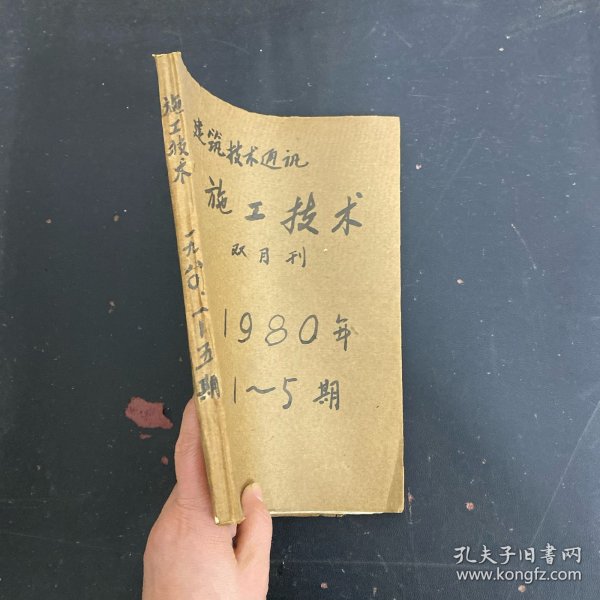 建筑技术通讯
施工技术
双月刊
1980年
1~5期
施工技术
一九八〇.一-五期
孔夫子旧书网
www.kongfz.com